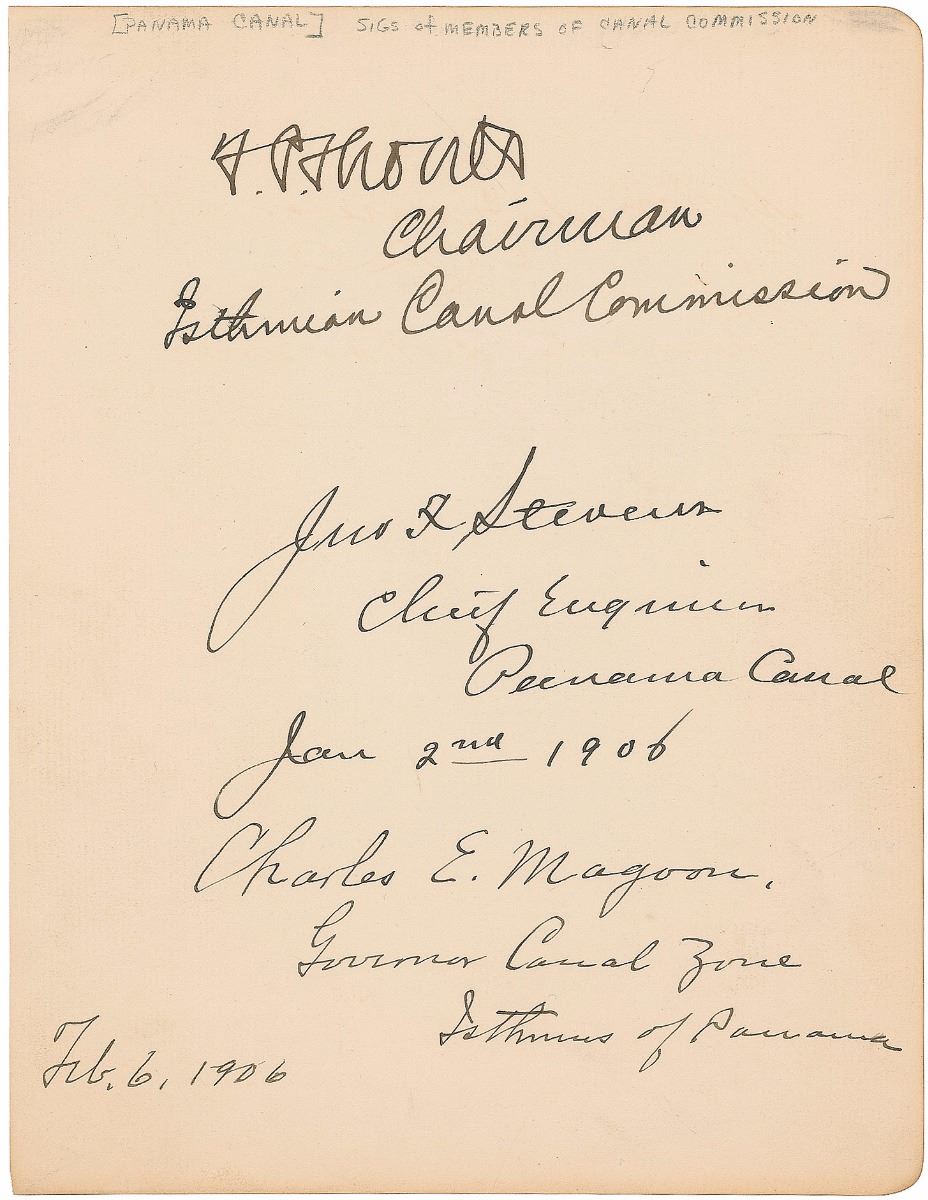 [PANAMA CANAL] SIGS of MEMBERS OF CANAL COMMISSION
T. P. Shonts
Chairman
Isthmian Canal Commission
Jno F Stevens
Chief Engineer
Panama Canal
Jan 2nd 1906
Charles E. Magoon,
Governor Canal Zone
Isthmus of Panama
Feb. 6, 1906